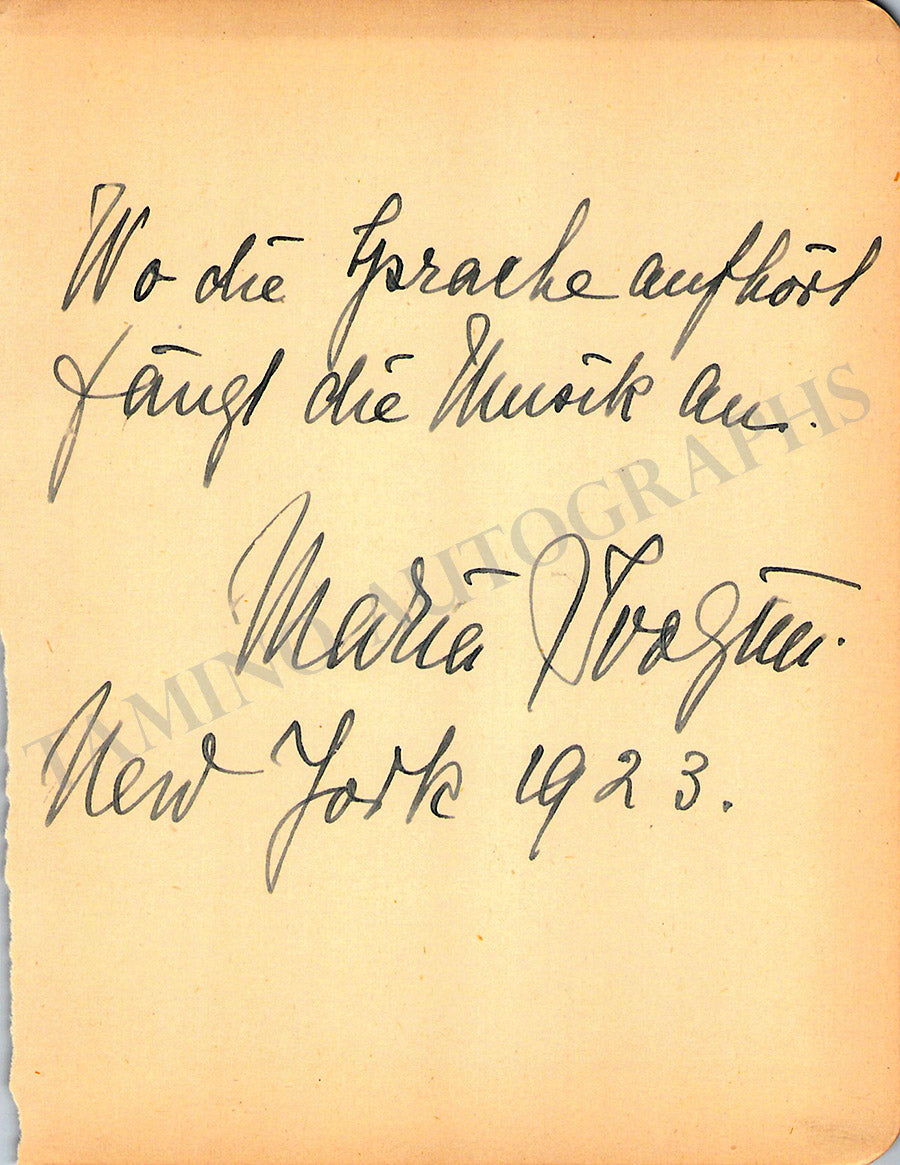 Wo die Sprache aufhört
fängt die Musik an.
Maria Ivogün.
New York 1923.
TAMINO AUTOGRAPHS